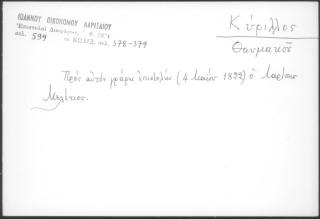 ΙΩΑΝΝΟΥ ΟΙΚΟΝΟΜΟΥ ΛΑΡΙΣΑΙΟΥ
Ἐπιστολαὶ Διαφόρων,
σελ. 599 σελ. 378-379
Κύριλλος
Θαυμακοῦ
Πρὸς αὐτὸν γράφει ἐπιστολὴν (4 Μαΐου 1822) ὁ Λαρίσης
Μελέτιος.